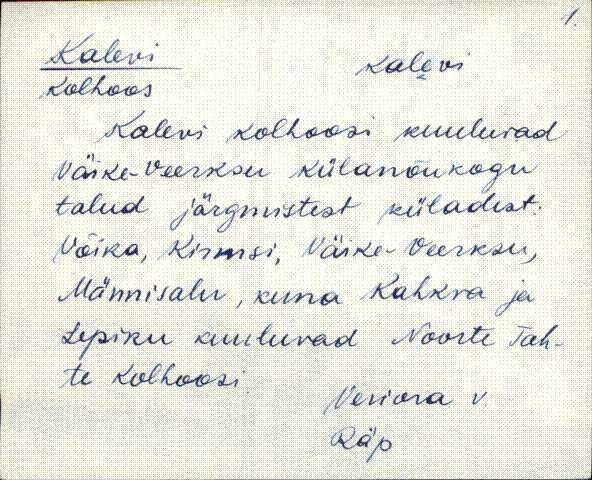 1.
Kalevi kalevi
Kolhoos
Kalevi kolhoosi kuuluvad
Väike-Veerksu külanõukogu
talud järgmistest küladest:
Võika, Kirmsi, Väike-Veerksu,
Männisalu, kuna Kahkva ja
Lepiku kuuluvad Noorte Tah-
te kolhoosi.
Veriora v
Räp